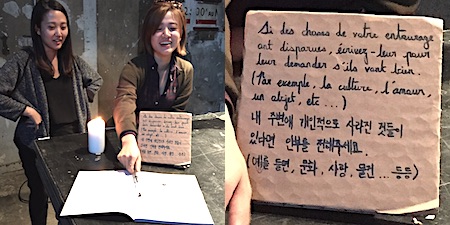 Si des choses de votre entourage
ont disparues, écrivez-leur pour
leur demander s'ils vont bien.
(Par exemple, la culture, l'amour,
un objet, etc ...)
내 주변에 개인적으로 사라진 것들이
있다면 안부를 전해주세요.
(예를 들면, 문화, 사랑, 물건 ... 등등)